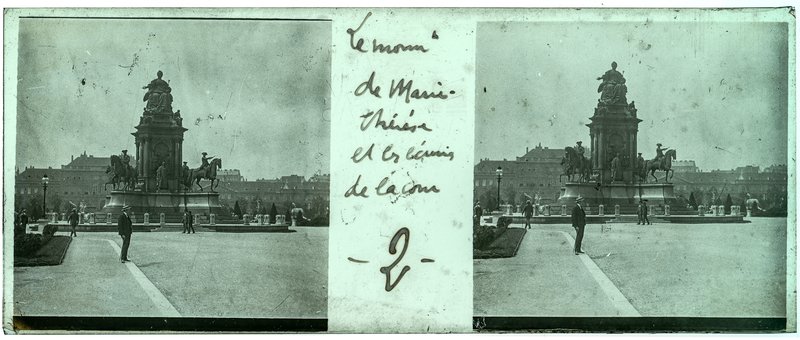 Le monᵗ
de Marie-
thérése
et les écuries
de la cour
- 2 -